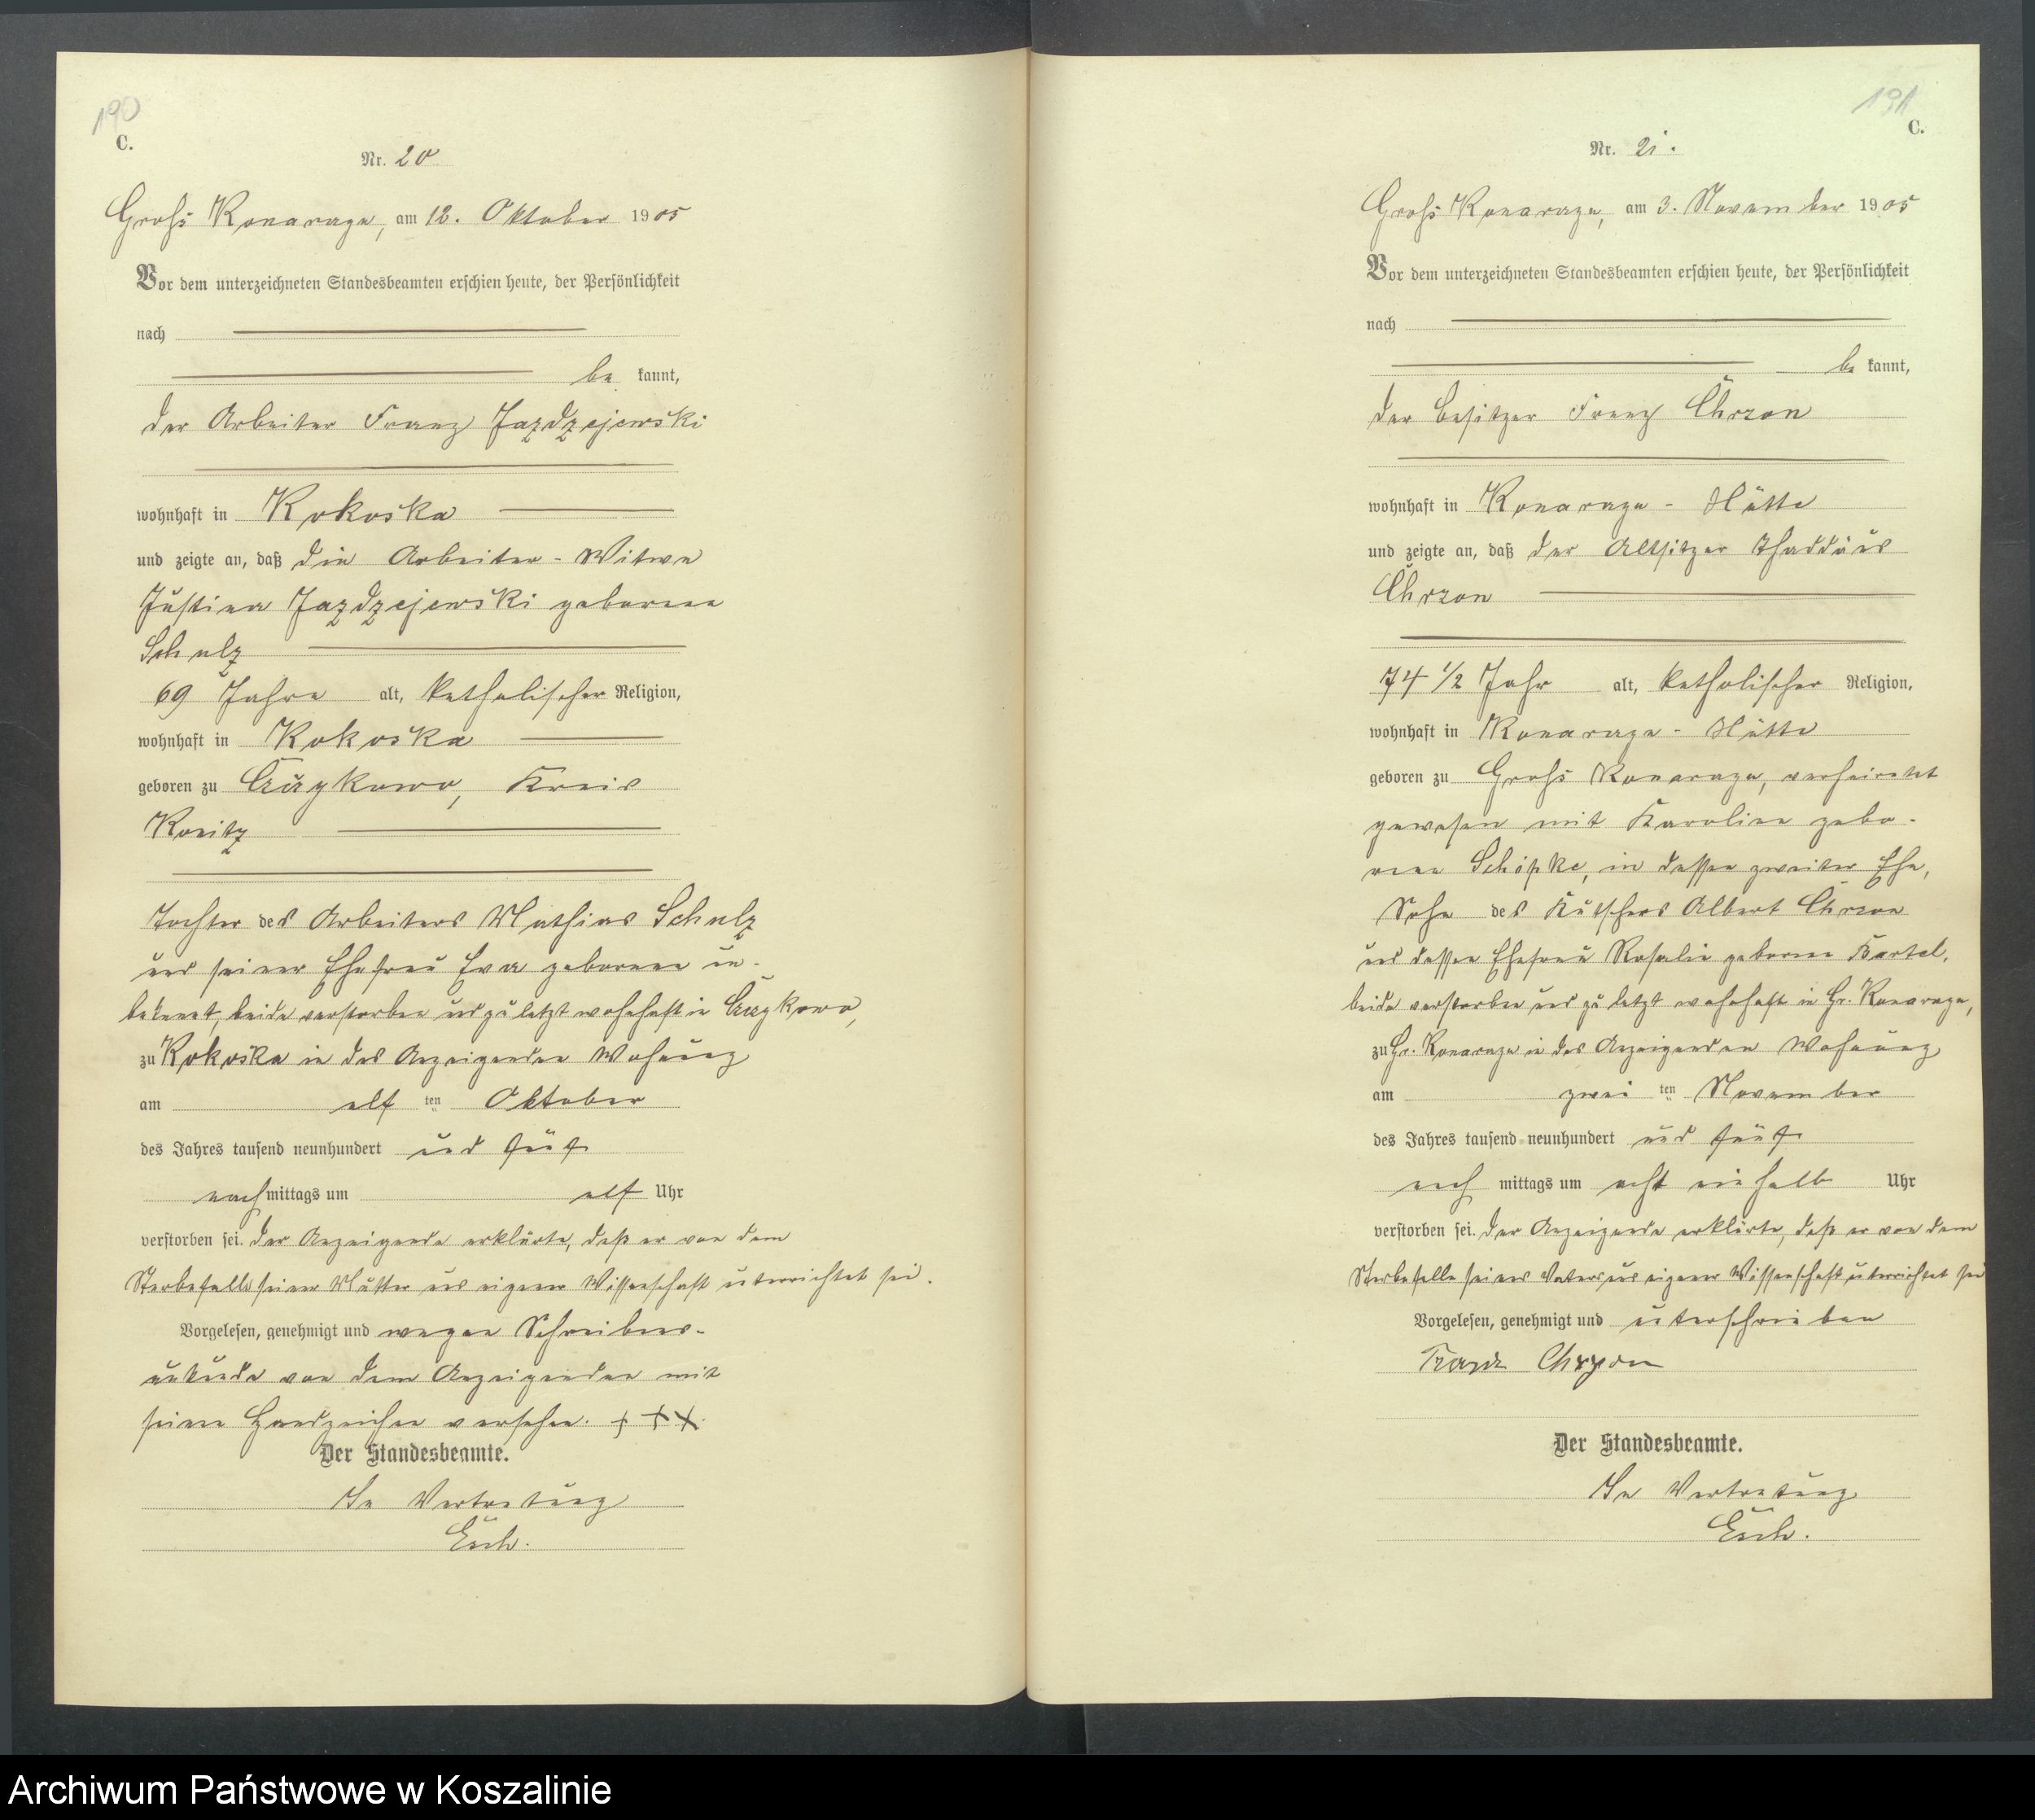 190
C.
Nr. 20
Groß Konarczyn, am 12. Oktober 1905
Vor dem unterzeichneten Standesbeamten erschien heute, der Persönlichkeit
nach
be kannt,
der Arbeiter Franz Jazdzejewski
wohnhaft in Kokoska
und zeigte an, daß die Arbeiter-Witwe
Justina Jazdzejewski geborene
Schulz
69 Jahre alt, katholischer Religion,
wohnhaft in Kokoska
geboren zu Kreis
Konitz
Tochter des Arbeiters Mathias Schulz
und seiner Ehefrau Eva geborene un-
bekannt, beide verstorben und zuletzt wohnhaft in
zu Kokoska in des Anzeigenden Wohnung
am elf ten Oktober
des Jahres tausend neunhundert und fünf
nach mittags um elf Uhr
verstorben sei. Der Anzeigende erklärte, daß er von dem
Sterbefalle seiner Mutter aus eigener Wissenschaft unterrichtet sei.
Vorgelesen, genehmigt und wegen Schreibens-
unkunde von dem Anzeigenden mit
seinem Handzeichen versehen. + + +
Der Standesbeamte.
In Vertretung
191
C.
Nr. 21.
Groß Konarczyn, am 3. November 1905
Vor dem unterzeichneten Standesbeamten erschien heute, der Persönlichkeit
nach
be kannt,
der Besitzer Franz Chrzon
wohnhaft in Hütte
und zeigte an, daß der Altsitzer Thaddäus
Chrzon
74 1/2 Jahr alt, katholischer Religion,
wohnhaft in Hütte
geboren zu Groß Konarczyn, verheiratet
gewesen mit Karoline gebo-
rene Schöpke, in dessen zweiter Ehe,
Sohn des Kutschers Albert Chrzon
und dessen Ehefrau Rosalie geborene Bartel,
beide verstorben und zuletzt wohnhaft in Gr. Konarczyn,
zu Gr. Konarczyn in des Anzeigenden Wohnung
am zwei ten November
des Jahres tausend neunhundert und fünf
nach mittags um acht ein halb Uhr
verstorben sei. Der Anzeigende erklärte, daß er von dem
Sterbefalle seines Vaters aus eigener Wissenschaft unterrichtet sei
Vorgelesen, genehmigt und unterschrieben
Franz Chrzon
Der Standesbeamte.
In Vertretung
Archiwum Państwowe w Koszalinie